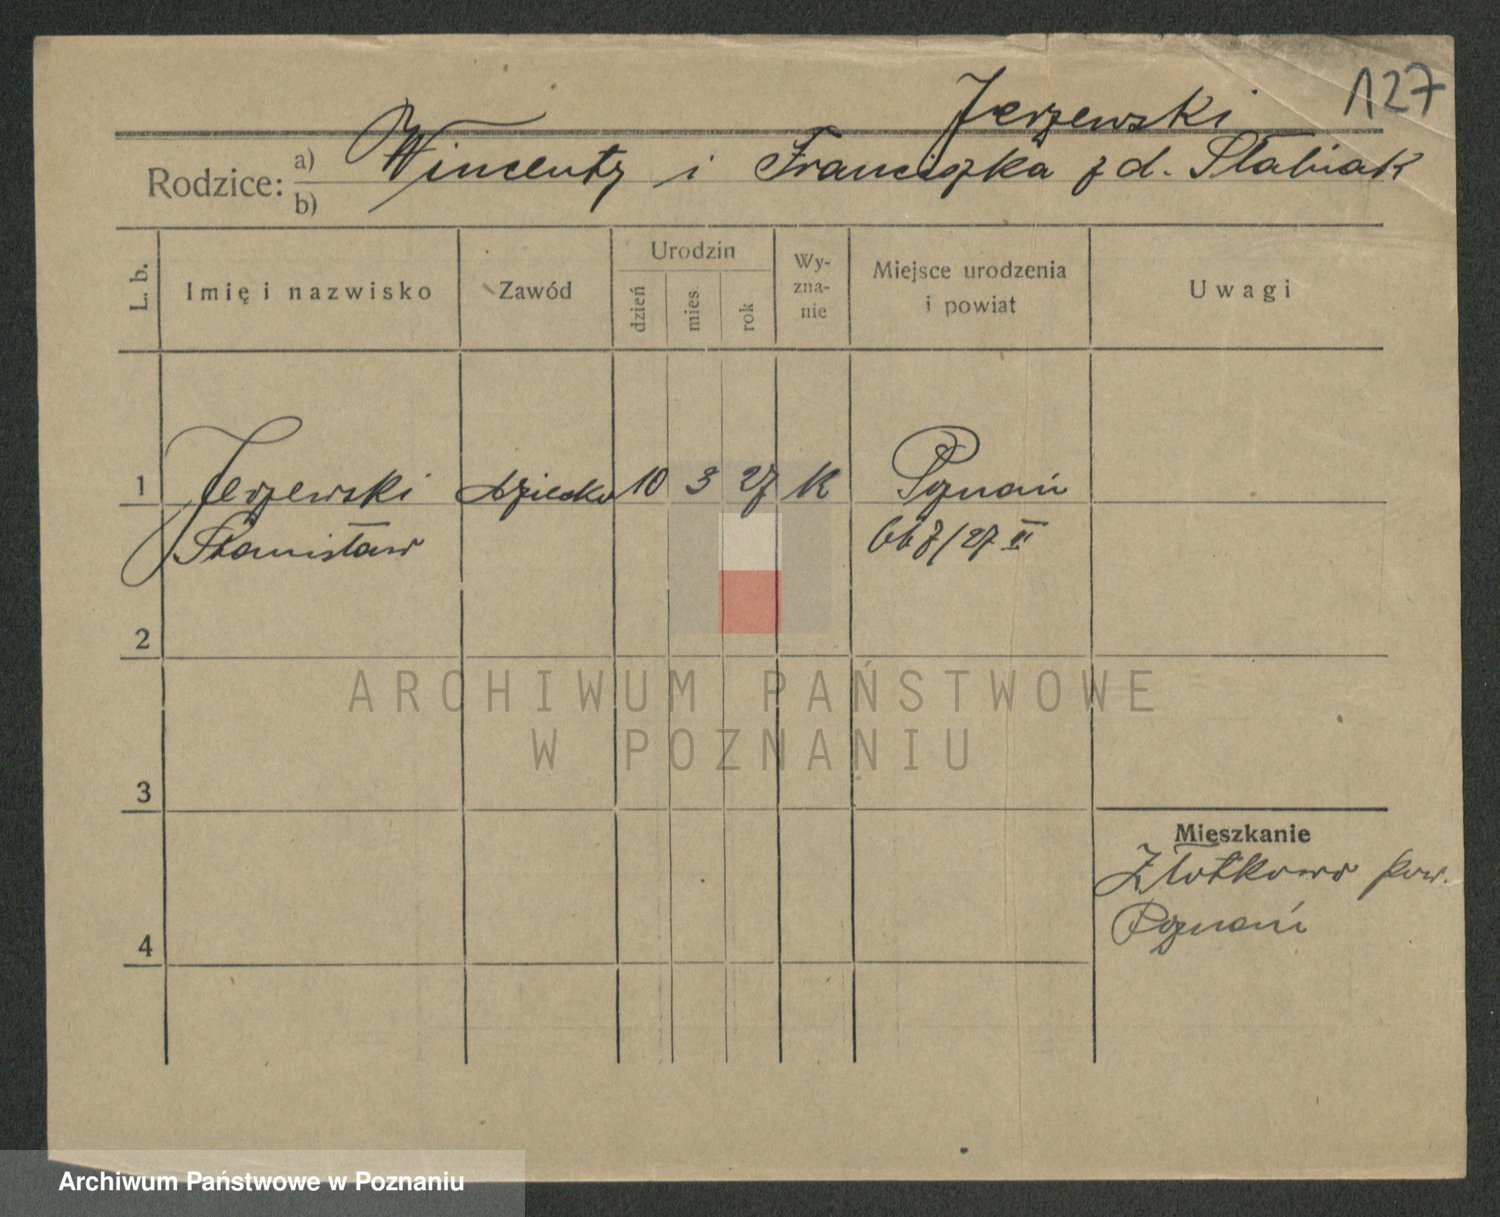 127
Jerzewski
Rodzice: a) Wincenty i Franciszka z d. Słabiak
b)
L. b.
Imię i nazwisko
Zawód
Urodzin
dzień
mies.
rok
Wy-
zna-
nie
Miejsce urodzenia
i powiat
Uwagi
1 Jerzewski dziecko 10 3 27 k Poznań
Stanisław 667/27 II
2
ARCHIWUM PAŃSTWOWE
W POZNANIU
3
Mieszkanie
Złotkowo pow.
Poznań
4
Archiwum Państwowe w Poznaniu